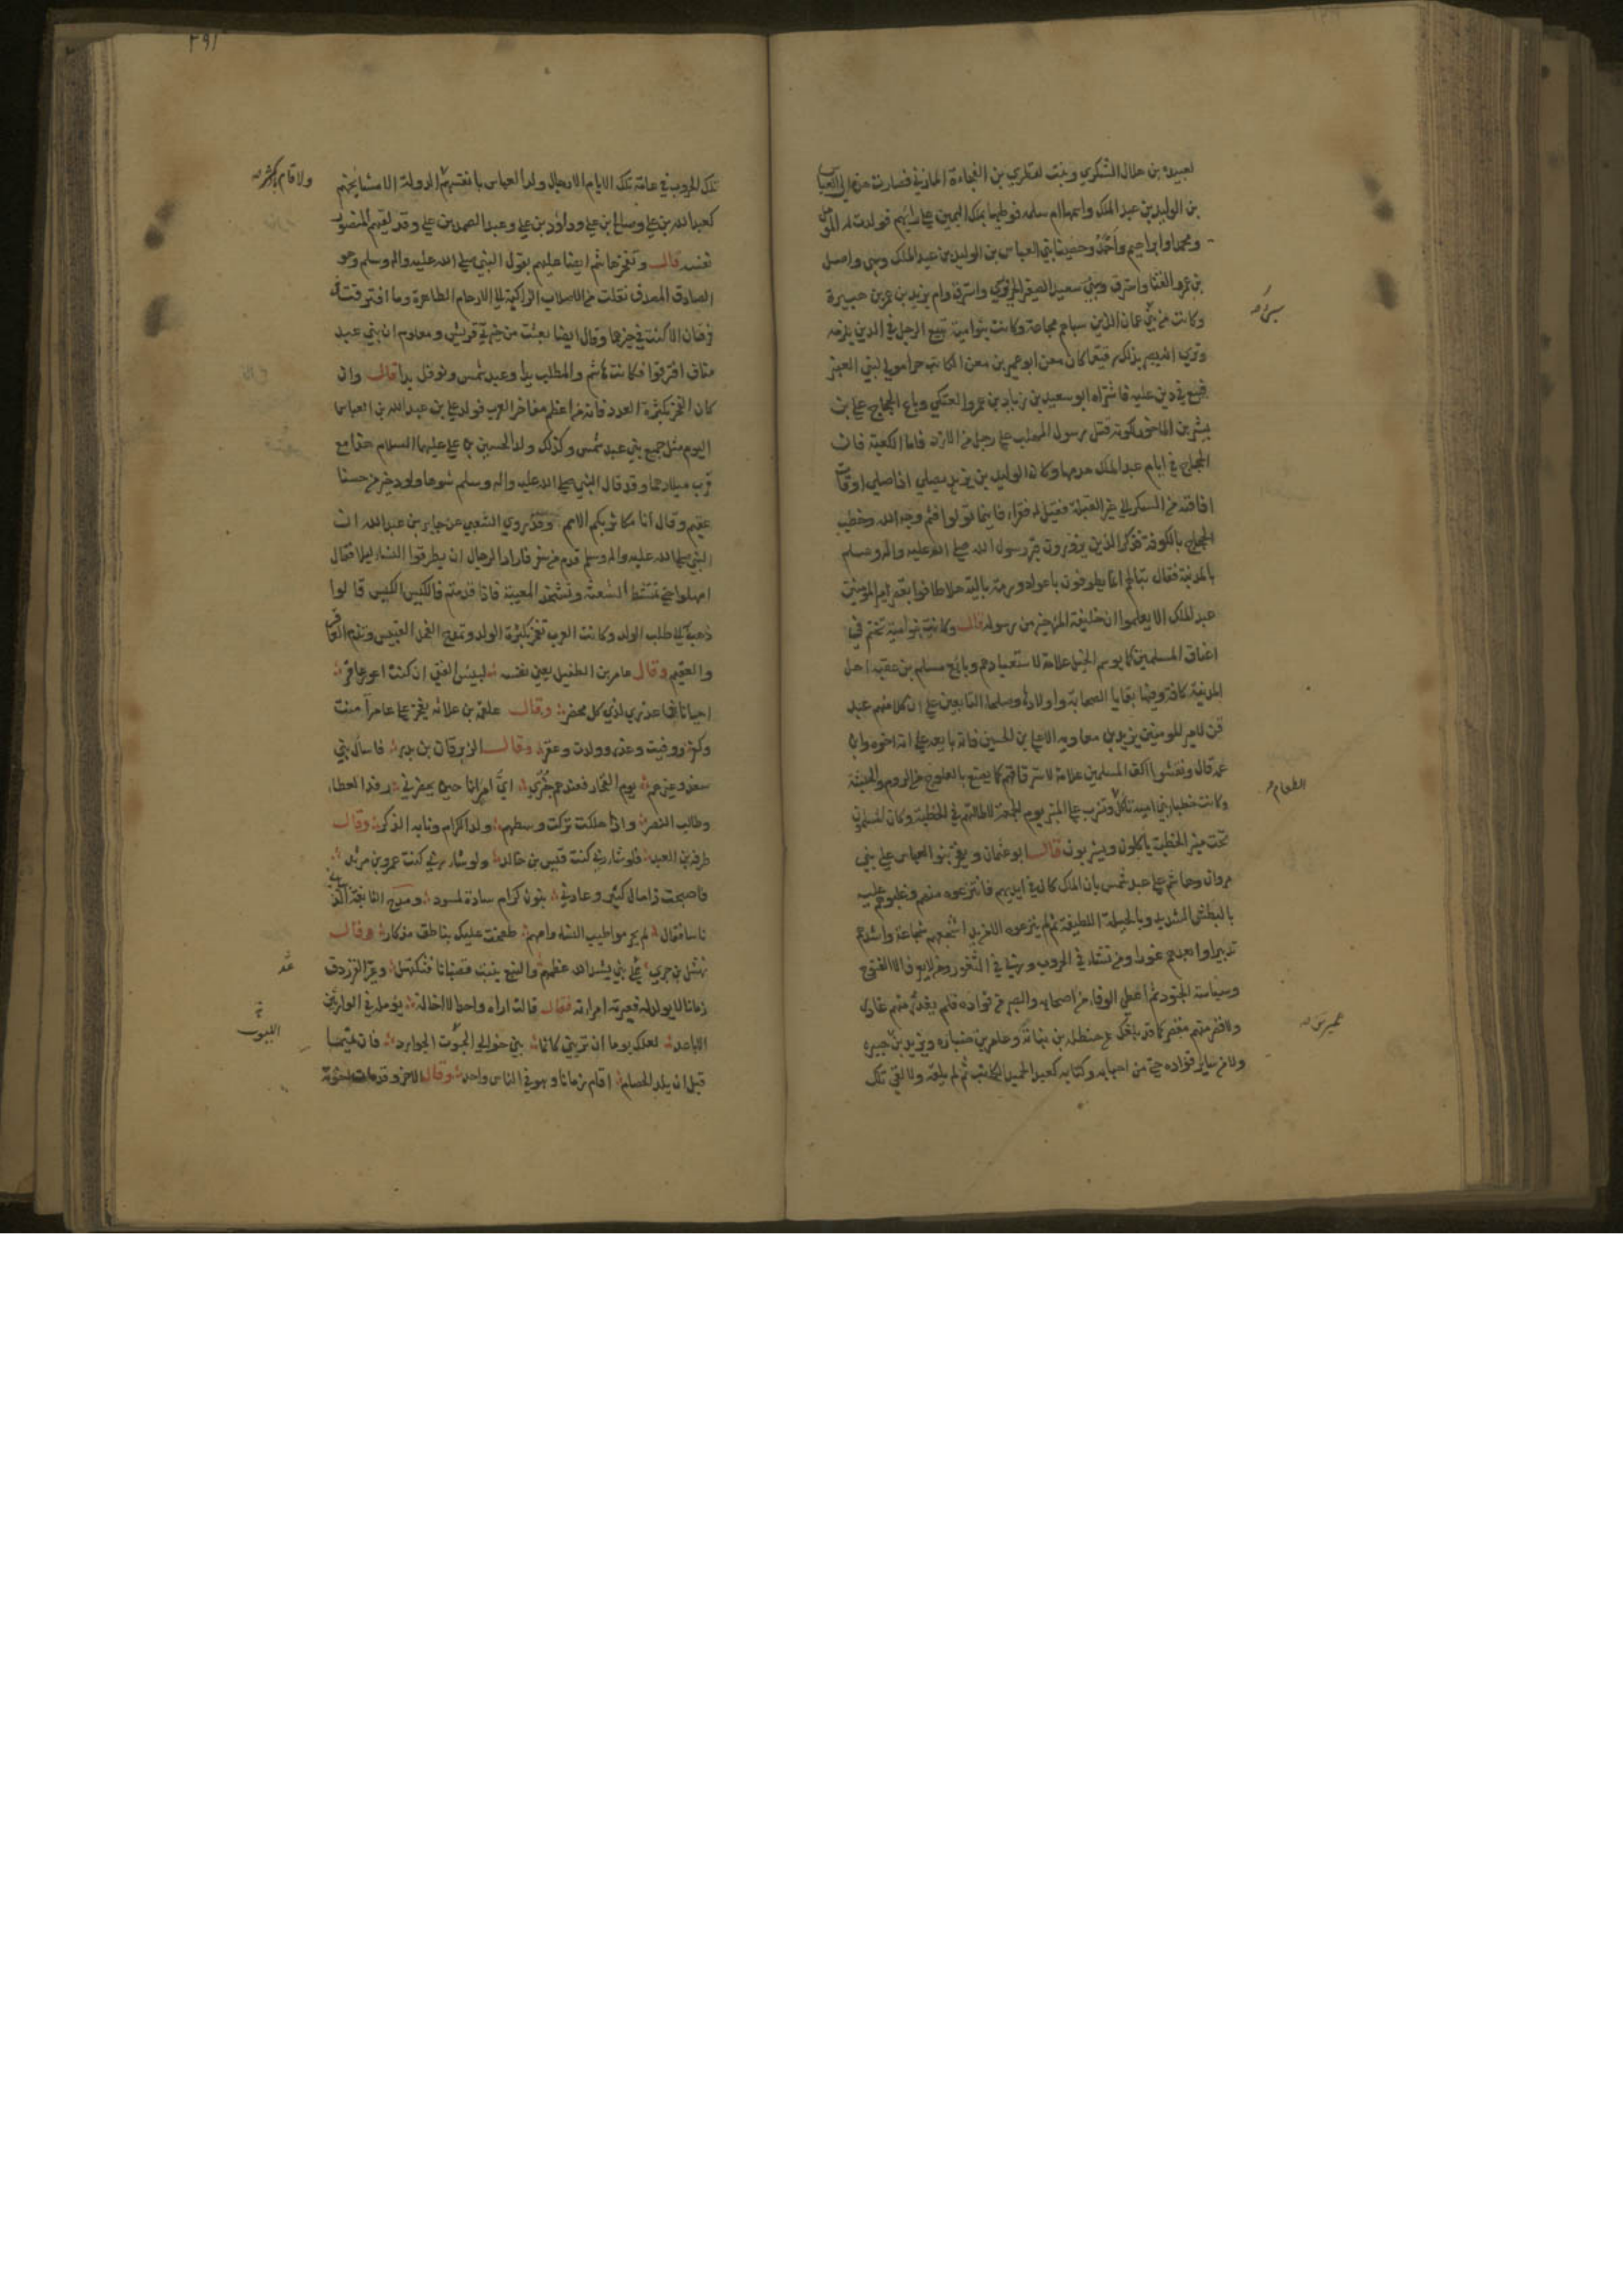 لعبيدة بن هلال اليشكري وبنت لقطري بن الفجاءة المازني فصارت هذه الى العباس
بن الوليد بن عبد الملك واسمها ام سلمه فوطيها بملك اليمين على رأيهم فولدت له المؤمل
ومحمدا وابراهيم واحمد وحصينا بني العباس بن الوليد بن عبد الملك وسبى واصل
بن عمرو القنا واسترق وسبى سعيد الصغير الحروري واسترق وام يزيد بن عمر بن هبيرة
سبىء
وكانت من سبي عمان الذين سباهم مجاعة وكانت بنو امية تبيع الرجل في الدين يلزمه
وترى انه يصير بذلك رقيقا كان معن ابو عمير بن معن الكاتب حرا مولى لبني العنبر
فبيع في دين عليه فاشتراه ابو سعيد بن زياد بن عمرو العتكي وباع الحجاج علي بن
بشير بن الماحوز لكونه قتل رسول المهلب على رجل من الازد فاما الكعبة فان
الحجاج في ايام عبد الملك هدمها وكان الوليد بن يزيد يصلي اذا صلى اوقات
افاقته من السكر الى غير القبلة فقيل له فقراء فاينما تولوا فثم وجه الله وخطب
الحجاج بالكوفة فذكر الذين يزورون قبر رسول الله صلى الله عليه واله وسلم
بالمدينة فقال تبا لهم انما يطوفون باعواد ورمة بالية هلا طافوا بقصر امير المومنين
عبد الملك الا يعلموا ان خليفة المرء خير من رسوله قال وكانت بنو امية تختم في
اعناق المسلمين كما يوسم الخيل علامة لاستعبادهم وبايع مسلم بن عقبه اهل
المدينة كافة وفيها بقايا الصحابة واولادها وصلحاء التابعين على ان كلا منهم عبد
قن لامير المومنين يزيد بن معاويه الا علي بن الحسين فانه بايعه على انه اخوه وابن
عمه قال ونقشوا اكف المسلمين علامة لاسترقاقهم كما يصنع بالعلوج من الروم والحبشة
الطعام
وكانت خطباء بني امية تاكل وتشرب على المنبر يوم الجمعة لاطالتهم في الخطبة وكان المسلمون
تحت منبر الخطبة ياكلون ويشربون قال ابو عثمان ويفخر بنو العباس على بني
مروان وهاشم على عبد شمس بان الملك كان في ايديهم فانتزعوه منهم وغلبوهم عليه
بالبطش الشديد وبالحيلة اللطيفة ثم لم ينزعوه الا من يد اشجعهم شجاعة واشدهم
تدبيرا وابعدهم غورا ومن نشاء في الحروب وربي في الثغور ومن لا يعرف الا الفتوح
وسياسة الجنود ثم اعطي الوفاء من اصحابه والصبر من قواده فلم يغدر منهم غادر
ولا قصر منهم مقصر كما قد بلغك عن حنظلة بن نباتة وعامر بن ضباره ويزيد بن هبيره
عمر بن
ولا من ساير قواده حتى من احبابه وكتابه كعبد الحميد الكاتب ثم لم يلقه ولا لقي تلك
٢٩١
تلك الحروب في عامة تلك الايام الا رجال ولد العباس بانفسهم الدولة الا مشايخهم
ولا قام باكثر
كعبد الله بن علي وصالح بن علي وداود بن علي وعبد الصمد بن علي وقد لقيهم المنصور
نفسه قال وتفخر هاشم ايضا عليهم بقول النبي صلى الله عليه واله وسلم وهو
الصادق المصدق نقلت من الاصلاب الزاكية الى الارحام الطاهرة وما افترقت
فرقتان الا كنت في خيرهما وقال ايضا بعثت من خيرة قريش ومعلوم ان بني عبد
مناف افترقوا فكانت هاشم والمطلب يدا وعبد شمس ونوفل يدا قال وان
كان الفخر بكثرة العدد فانه من اعظم مفاخر العرب فولد علي بن عبد الله بن العباس
اليوم مثل جميع بني عبد شمس وكذلك ولد الحسين بن علي عليهما السلام هذا مع
قرب ميلادهما وقد قال النبي صلى الله عليه واله وسلم شوهاء ولود خير من حسنا
عقيم وقال انا مكاثر بكم الامم وقد روى الشعبي عن جابر بن عبد الله ان
النبي صلى الله عليه واله وسلم قدم من سفر فاراد الرجال ان يطرقوا النساء ليلا فقال
امهلوا حتى تمتشط الشعثة وتستحد المغيبة فاذا قدمتم فالكيس الكيس قالوا
ذهب الى طلب الولد وكانت العرب تفخر بكثرة الولد وتمدح الفحل القبيس وتذم العاقر
والعقيم وقال عامر بن الطفيل يعني نفسه لبيس الفتى ان كنت اعور عاقر
جبانا فما عذري لدى كل محضر وقال علقمة بن علاثه يفخر على عامر آمنت
وكفر ووفيت وغدر وولدت وعقر وقال الزبرقان بن بدر فاسال بني
سعد وغيرهم يوم الفخار فعندهم خبري اي امرئ انا حين يحضرني رفد العطاء
وطالب النصر واذا هلكت تركت وسطهم ولد الكرام ونابه الذكر وقال
طرفه بن العبد فلو شاء ربي كنت قيس بن خالد ولو شاء ربي كنت عمرو بن مرثد
فاصبحت ذا مال كثير وعادني بنون كرام سادة لمسود ومدح النابغة الذبياني
ناسا فقال لم يحرموا طيب النساء وامهم طفحت عليك بناتق مذكار وقال
نهشل بن حري على بني يشد الله عظمهم والنبع ينبت قضبانا فيكتهل وغبر الفرزدق
زمانا لا يولد له فعيرته امراته فقال قالت اراه واحدا لا اخا له يومل في الوارثين
الاباعد لعلك يوما ان تريني كانما بني حوالي الليوث الحوارد فان تميما
الليوث
قبل ان يلد الحصا اقام زمانا وهو في الناس واحد وقال الاخر وقد مات اخوته